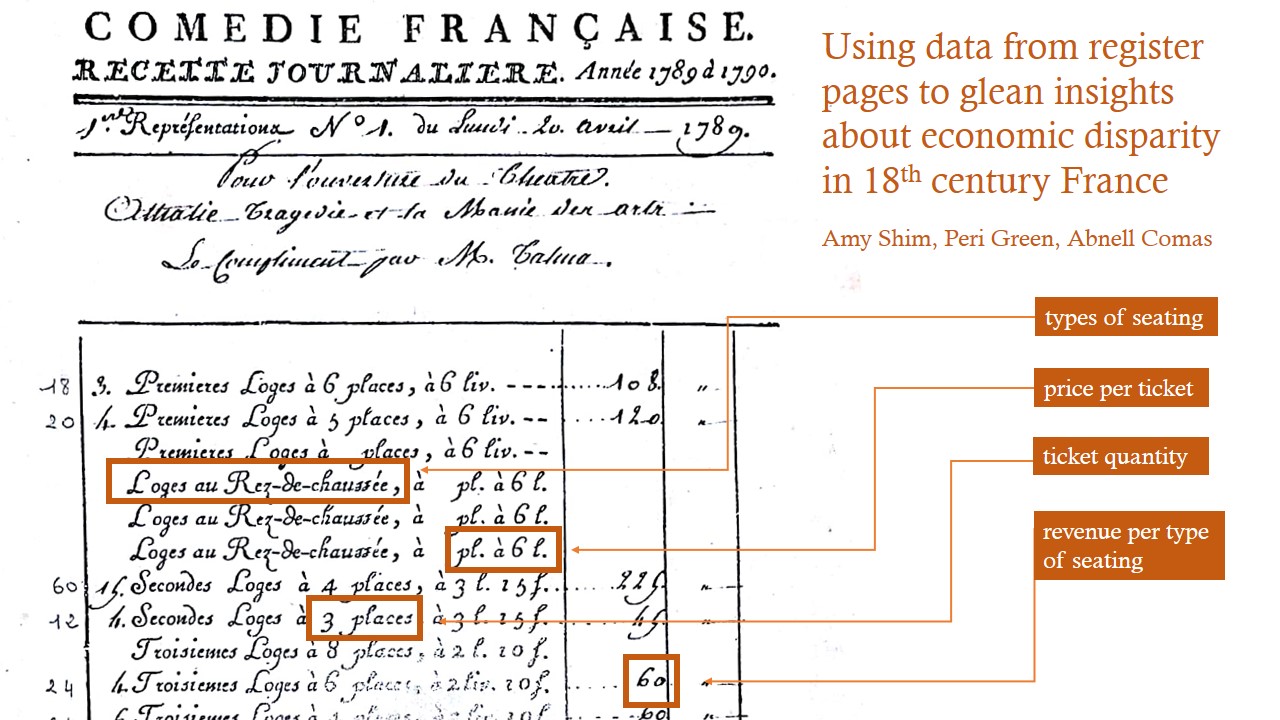 COMEDIE FRANÇAISE.
RECETTE JOURNALIERE. Année 1789 à 1790.
1.re Représentation N° 1. du Lundi 20. avril — 1789.
Pour l'ouverture du Theatre.
Athalie Tragedie et la Manie des arts —
Le Compliment par M. Talma.
18 3. Premieres Loges à 6 places, à 6 liv. ---......108. "
20 4. Premieres Loges à 5 places, à 6 liv. -- ....120. "
Premieres Loges à places, à 6 liv. --
Loges au Rez-de-chaussée, à pl. à 6 l.
Loges au Rez-de-chaussée, à pl. à 6 l.
Loges au Rez-de-chaussée, à pl. à 6 l.
60 15. Secondes Loges à 4 places, à 3 l. 15 ſ. .... 225. "
12 4. Secondes Loges à 3 places à 3 l. 15 ſ. 45. "
Troisiemes Loges à 8 places, à 2 l. 10 ſ.
24 4. Troisiemes Loges à 6 places, à 2 liv. 10 ſ. ..... 60 "
6. Troisiemes Loges à 4 places, à 2 liv. 10 ſ. .... 60
Using data from register
pages to glean insights
about economic disparity
in 18th century France
Amy Shim, Peri Green, Abnell Comas
types of seating
price per ticket
ticket quantity
revenue per type
of seating